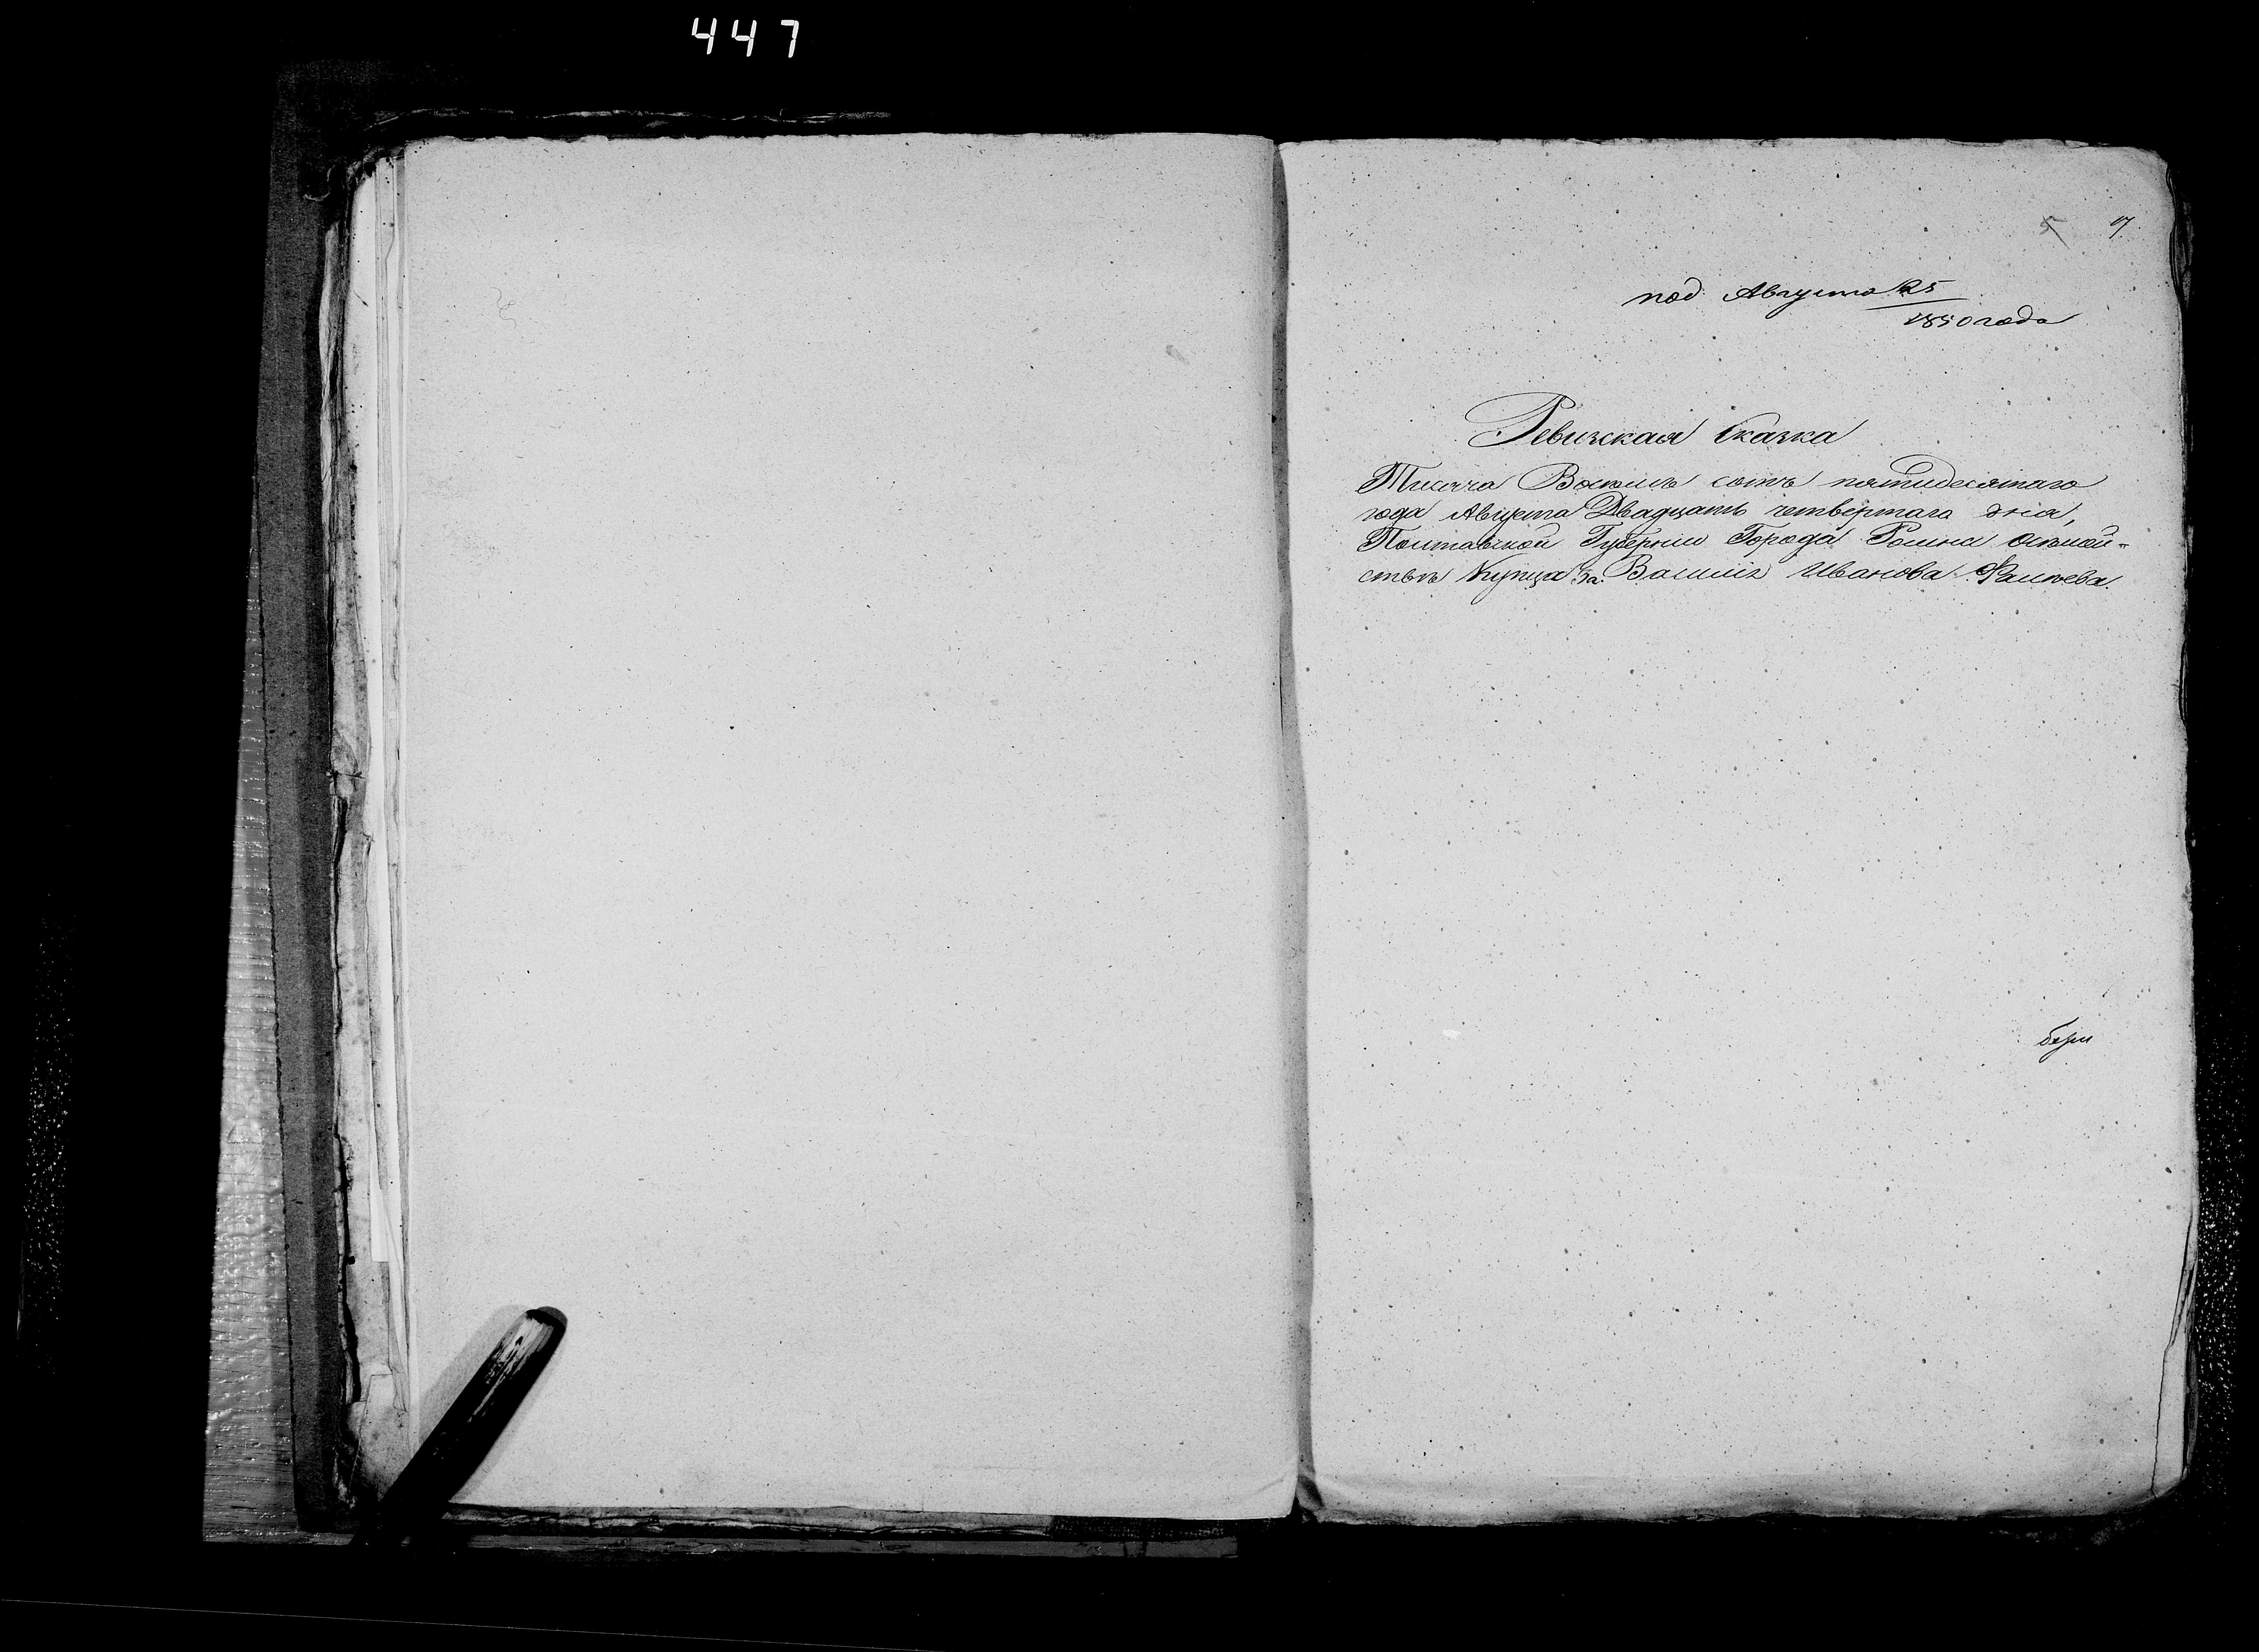 447
5 17
под. Августа 25
1850 года
Ревизская Сказка
Тысяча Восемь сотъ пятидесятаго
года Августа Двадцать четвертаго дня,
Полтавской Губернiи Города Ромна о семей-
ствѣ Купца Василiя Иванова